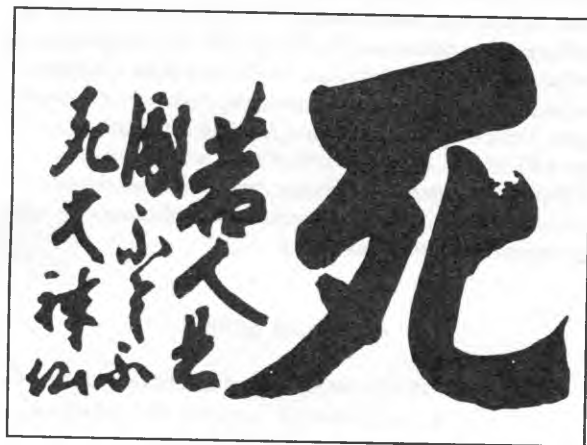 死
若人
不生不
死大神仙